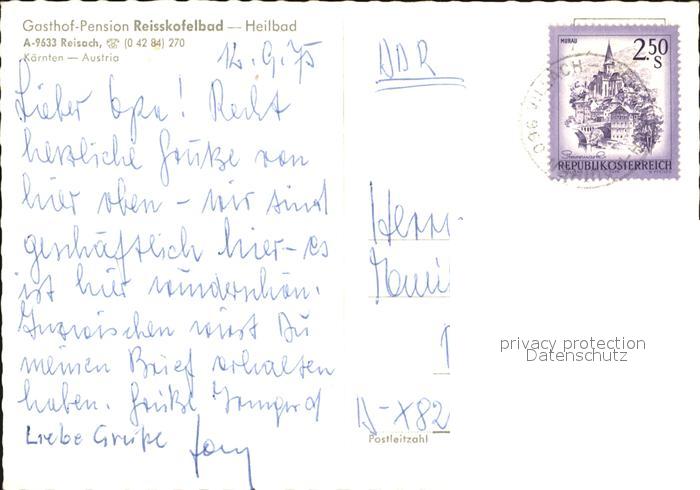 Gasthof-Pension Reisskofelbad — Heilbad
A-9633 Reisach, ☏ (0 42 84) 270
Kärnten — Austria
12.9.75
Lieber Opa! Recht
herzliche Grüße von
hier oben – wir sind
geschäftlich hier – es
ist hier wunderschön.
Inzwischen wirst Du
meinen Brief erhalten
haben. Grüße
Liebe Grüße
DDR
MURAU
2.50
S
REPUBLIK ÖSTERREICH
Herrn
D-X82
Postleitzahl
privacy protection
Datenschutz